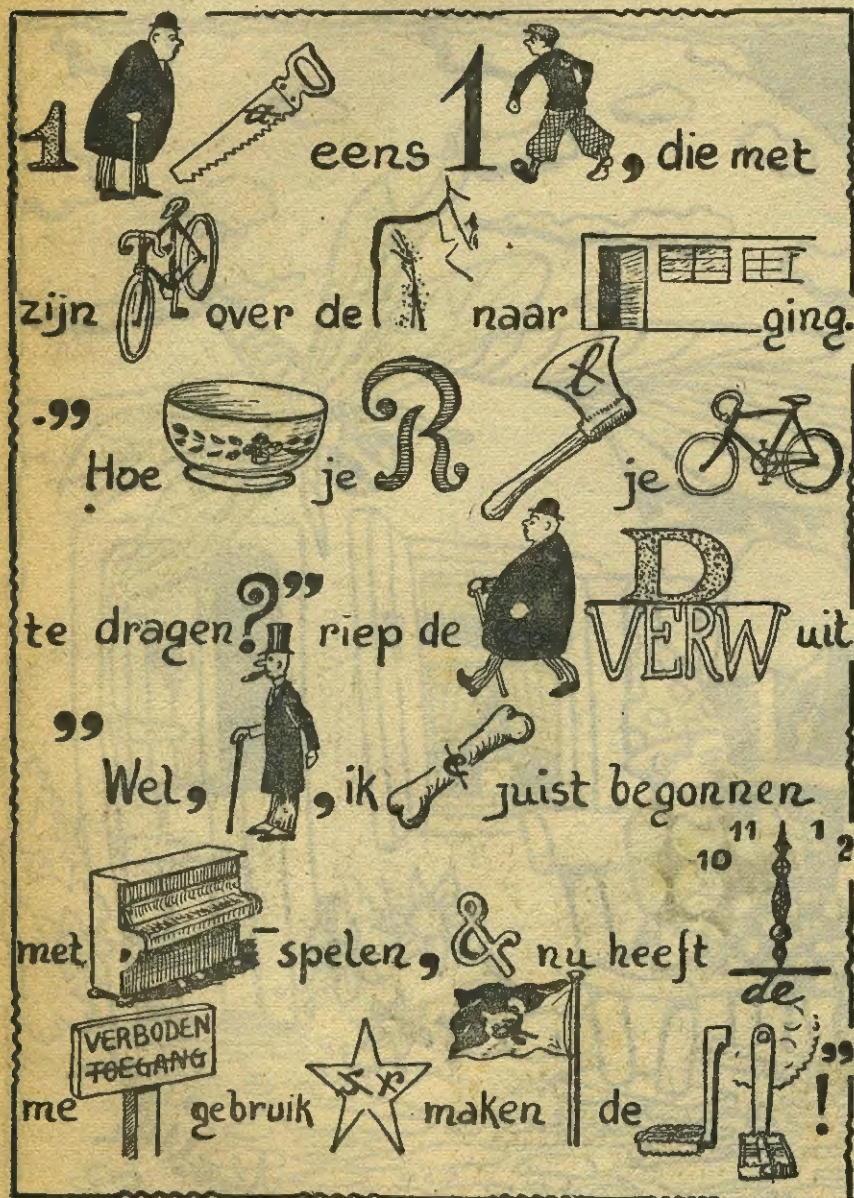 1 a eens 1 , die met
zijn over de naar ging.
„Hoe je R t je
te dragen?” riep de D
VERW uit
„Wel, , ik e juist begonnen
10 11 1 2
met -spelen, & nu heeft
de
VERBODEN
TOEGANG
me gebruik s r maken de !”